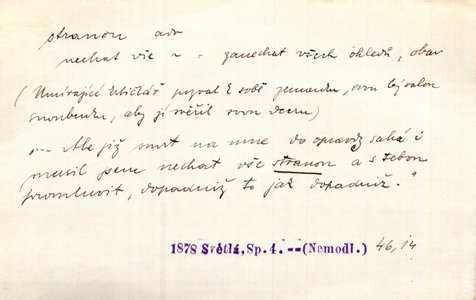 stranou adv
nechat vše ~ : zanechat všech ohledů, obav
(Umírající Uhlířář pozval k sobě jemandu, svou bývalou
snoubenku, aby jí svěřil svou dceru)
„... Ale již smrt na mne do opravdy sahá i
musil jsem nechat vše stranou a s tebou
promluvit, dopadniž to jak dopadniž."
1878 Světlá, Sp. 4. -- (Nemodl.) 46,14